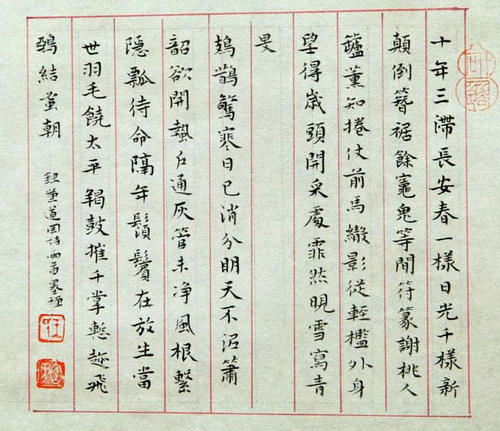 十年三滯長安春一樣日光千樣新
顛倒簪裾餘竈鬼等閒符篆謝桃人
鑪薰知捲仗前馬繖影從輕檻外身
望得歲頭開采處霏然晛雪寫青
旻
鳷鵲驚寒日已消分明天不沼簫
韶欲開蟄戶通灰管未净風根繫
隱瓢待命隔年鬚鬢在放生當
世羽毛饒太平羯鼓摧千掌慙趁飛
鵷結蚤朝